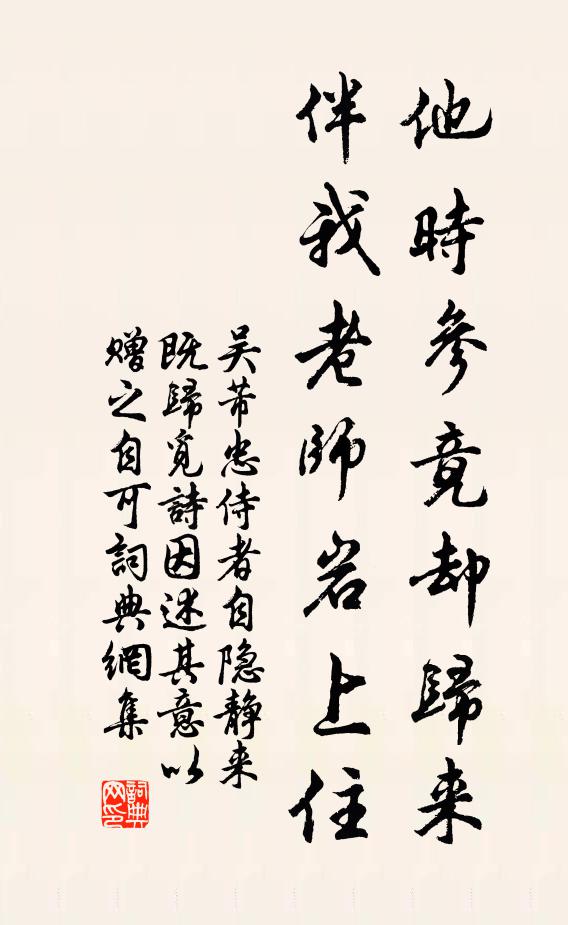 他時參竟却歸来
伴我老師岩上住
吴芾忠侍者自隐静来
既歸覓詩因述其意以
赠之自可詞典網集
詞典网印